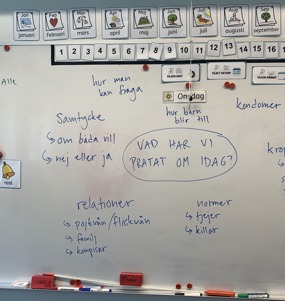 januari februari mars april maj juni juli augusti september
1 2 3 4 5 6 7 8 9 10 11 12 13 14 15 16
Alle
hur man
kan fråga
Onsdag
hur barn
blir till
kondomer
Samtycke
↳ om båda vill
↳ nej eller ja
VAD HAR VI
PRATAT OM IDAG?
krop
rast
relationer
↳ pojkvän/flickvän
↳ familj
↳ kompisar
normer
↳ tjejer
↳ killar